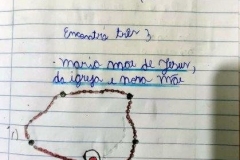 Encontro três 3
. maria mãe de Jesus,
da igreja e nossa mãe